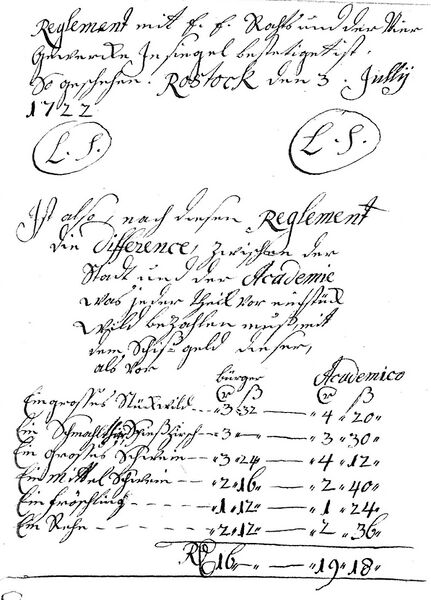 Reglement mit E. E. Rahts und der Vier
Gewercke Insiegel bestetiget ist.
So geschehen. Rostock den 3. Jully
1722
L. S. L. S.
Ist also, nach diesen Reglement
die Difference, zwischen der
Stadt und der Academie
was jeder Theil vor ein stück
Wild bezahlen muß, mit
dem Schiß-geld dieser,
als vor
bürger Academico
ß ß
Ein grosses Stück wild 3 32 — 4 20
Ein Schmahlthier Spieß hirsch — 3 — 3 30
Ein grosses Schwein — 3 24 — 4 12
Ein mittel Schwein — 2 16 — 2 40
Ein fröschling — 1 12 — 1 24
Ein Rehe - - - - 2 12 — 2 36
16 — 19 18